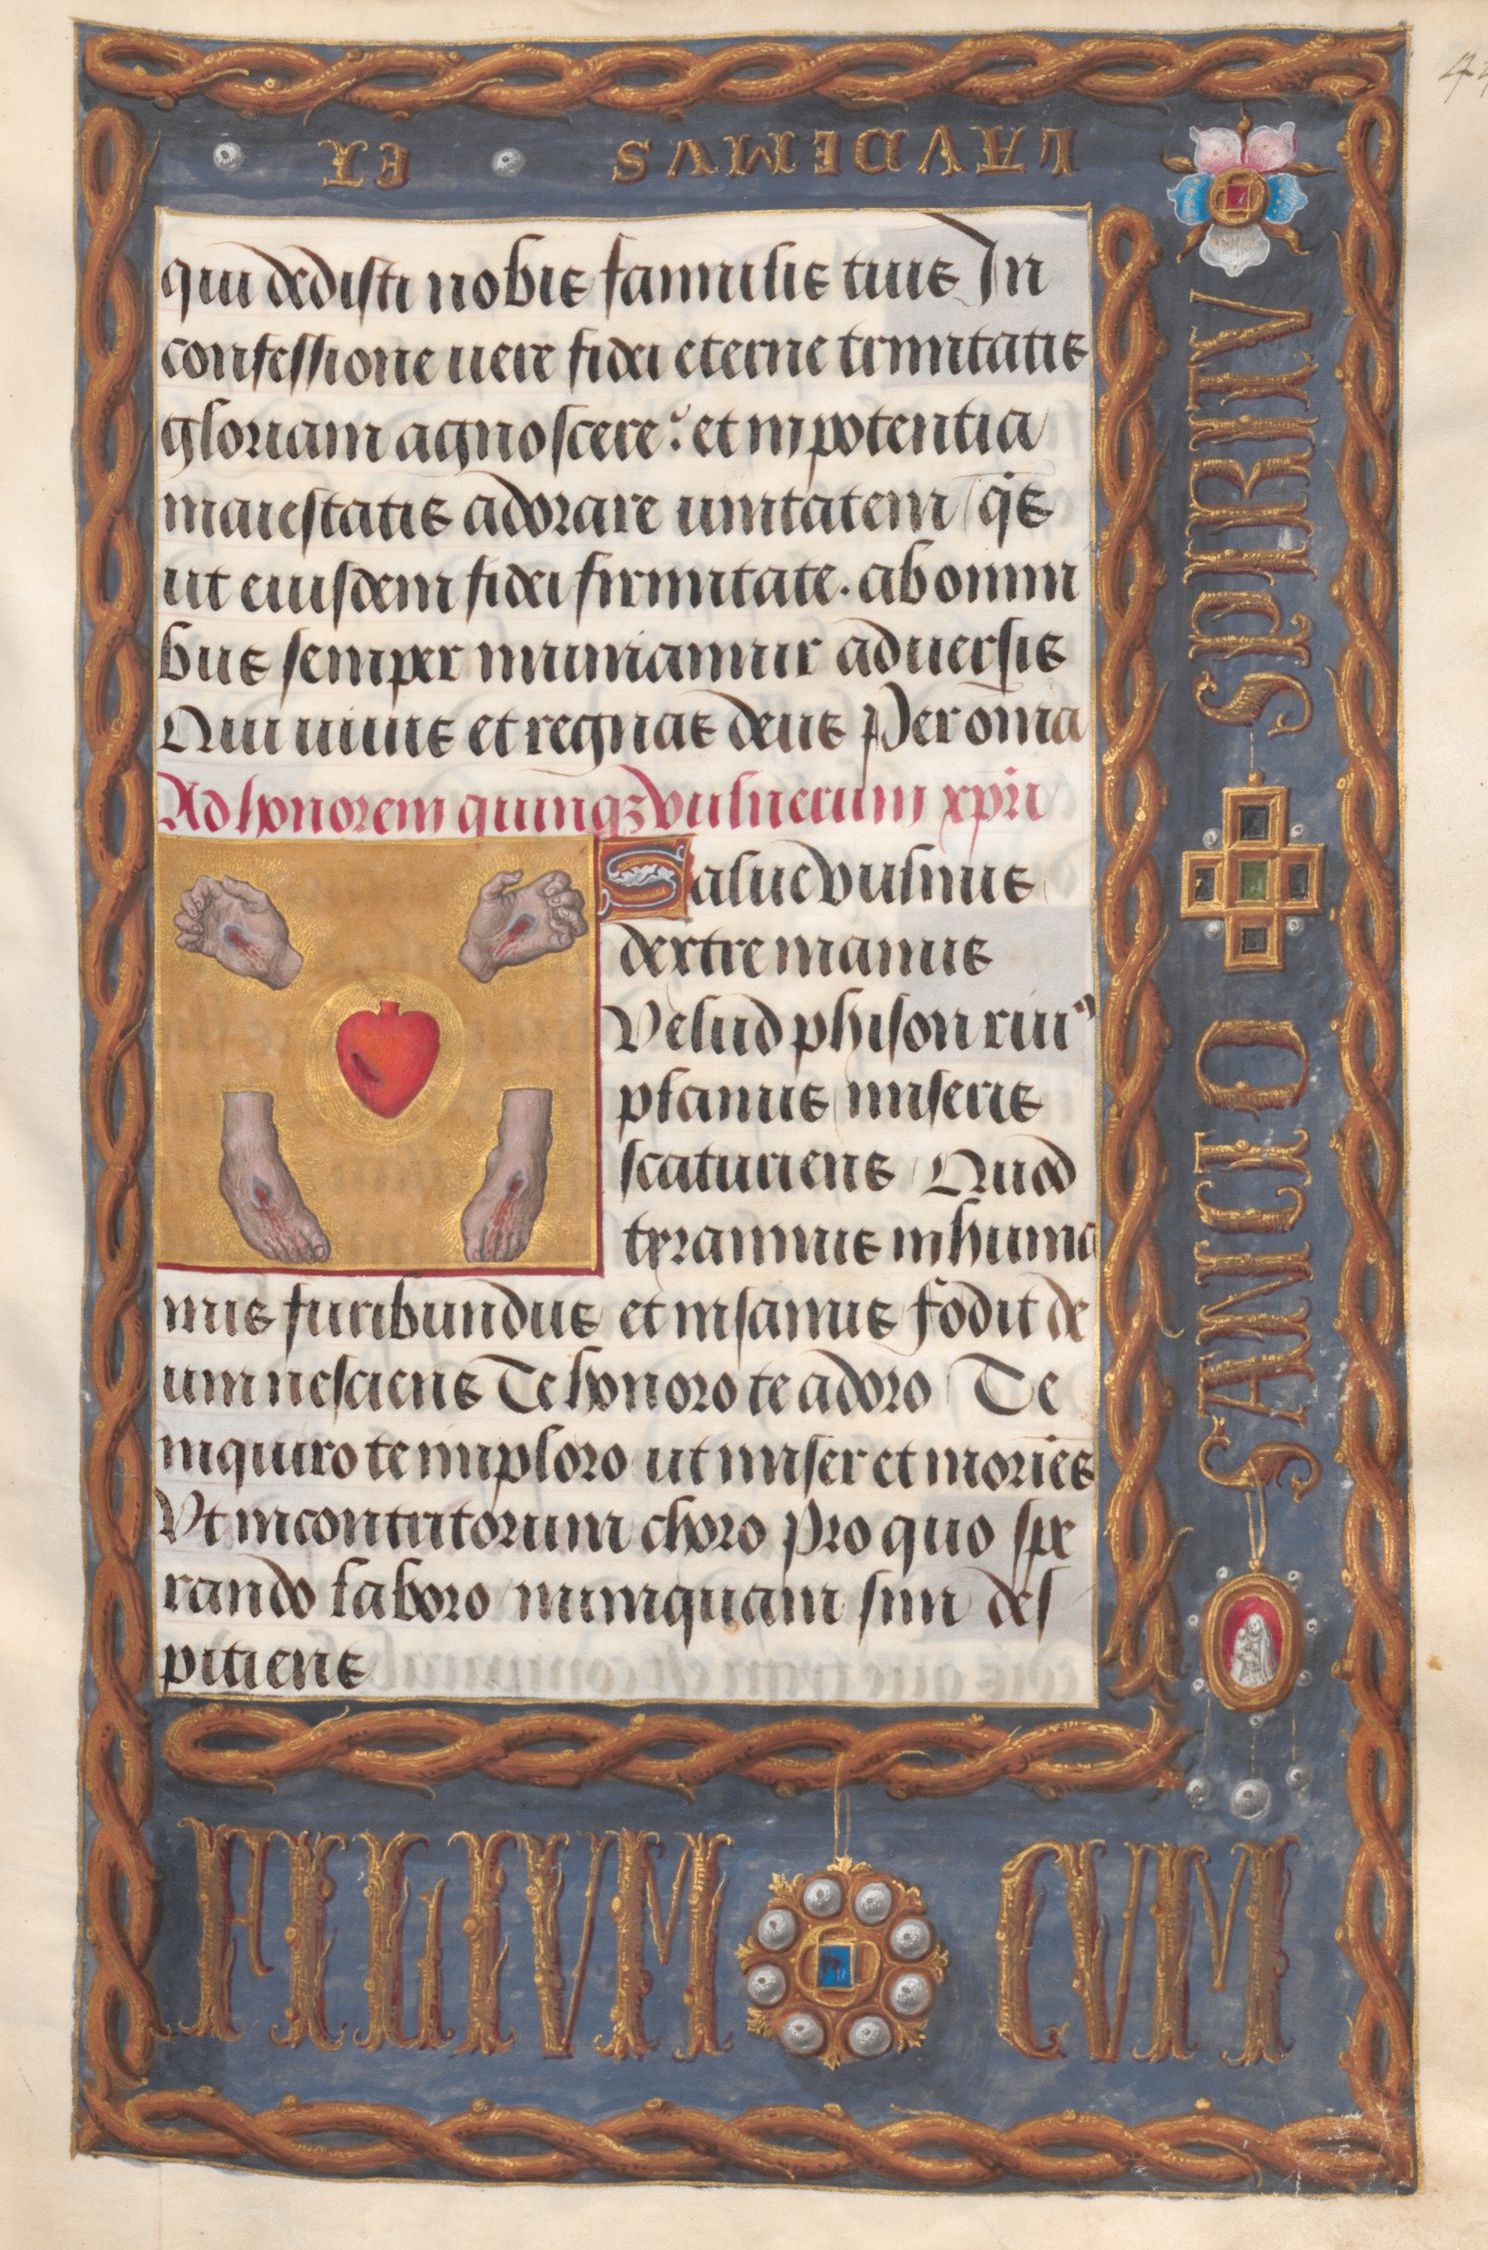 qui dedisti nobis famulis tuis In
confessione uere fidei eterne trinitatis
gloriam agnoscere: et in potentia
maiestatis adorare unitatem qs
ut eiusdem fidei firmitate. ab omni
bus semper muniamur aduersis
Qui uiuis et regnas deus Per omia
Ad honorem quinqz vulnerum xpri
Salue vulnus
dextre manus
Velud phison riu9
planus miseris
scaturiens Quod
tyrannus inhuma
nus furibundus et insanus fodit de
um nesciens Te honoro te adoro Te
inquiro te imploro ut miser et moriēs
Vt in contritorum choro Pro quo spe
rando laboro numquam sim des
pitiens
FILIVM CVM
SANCTO SPIRITV
LAVDEMVS ET